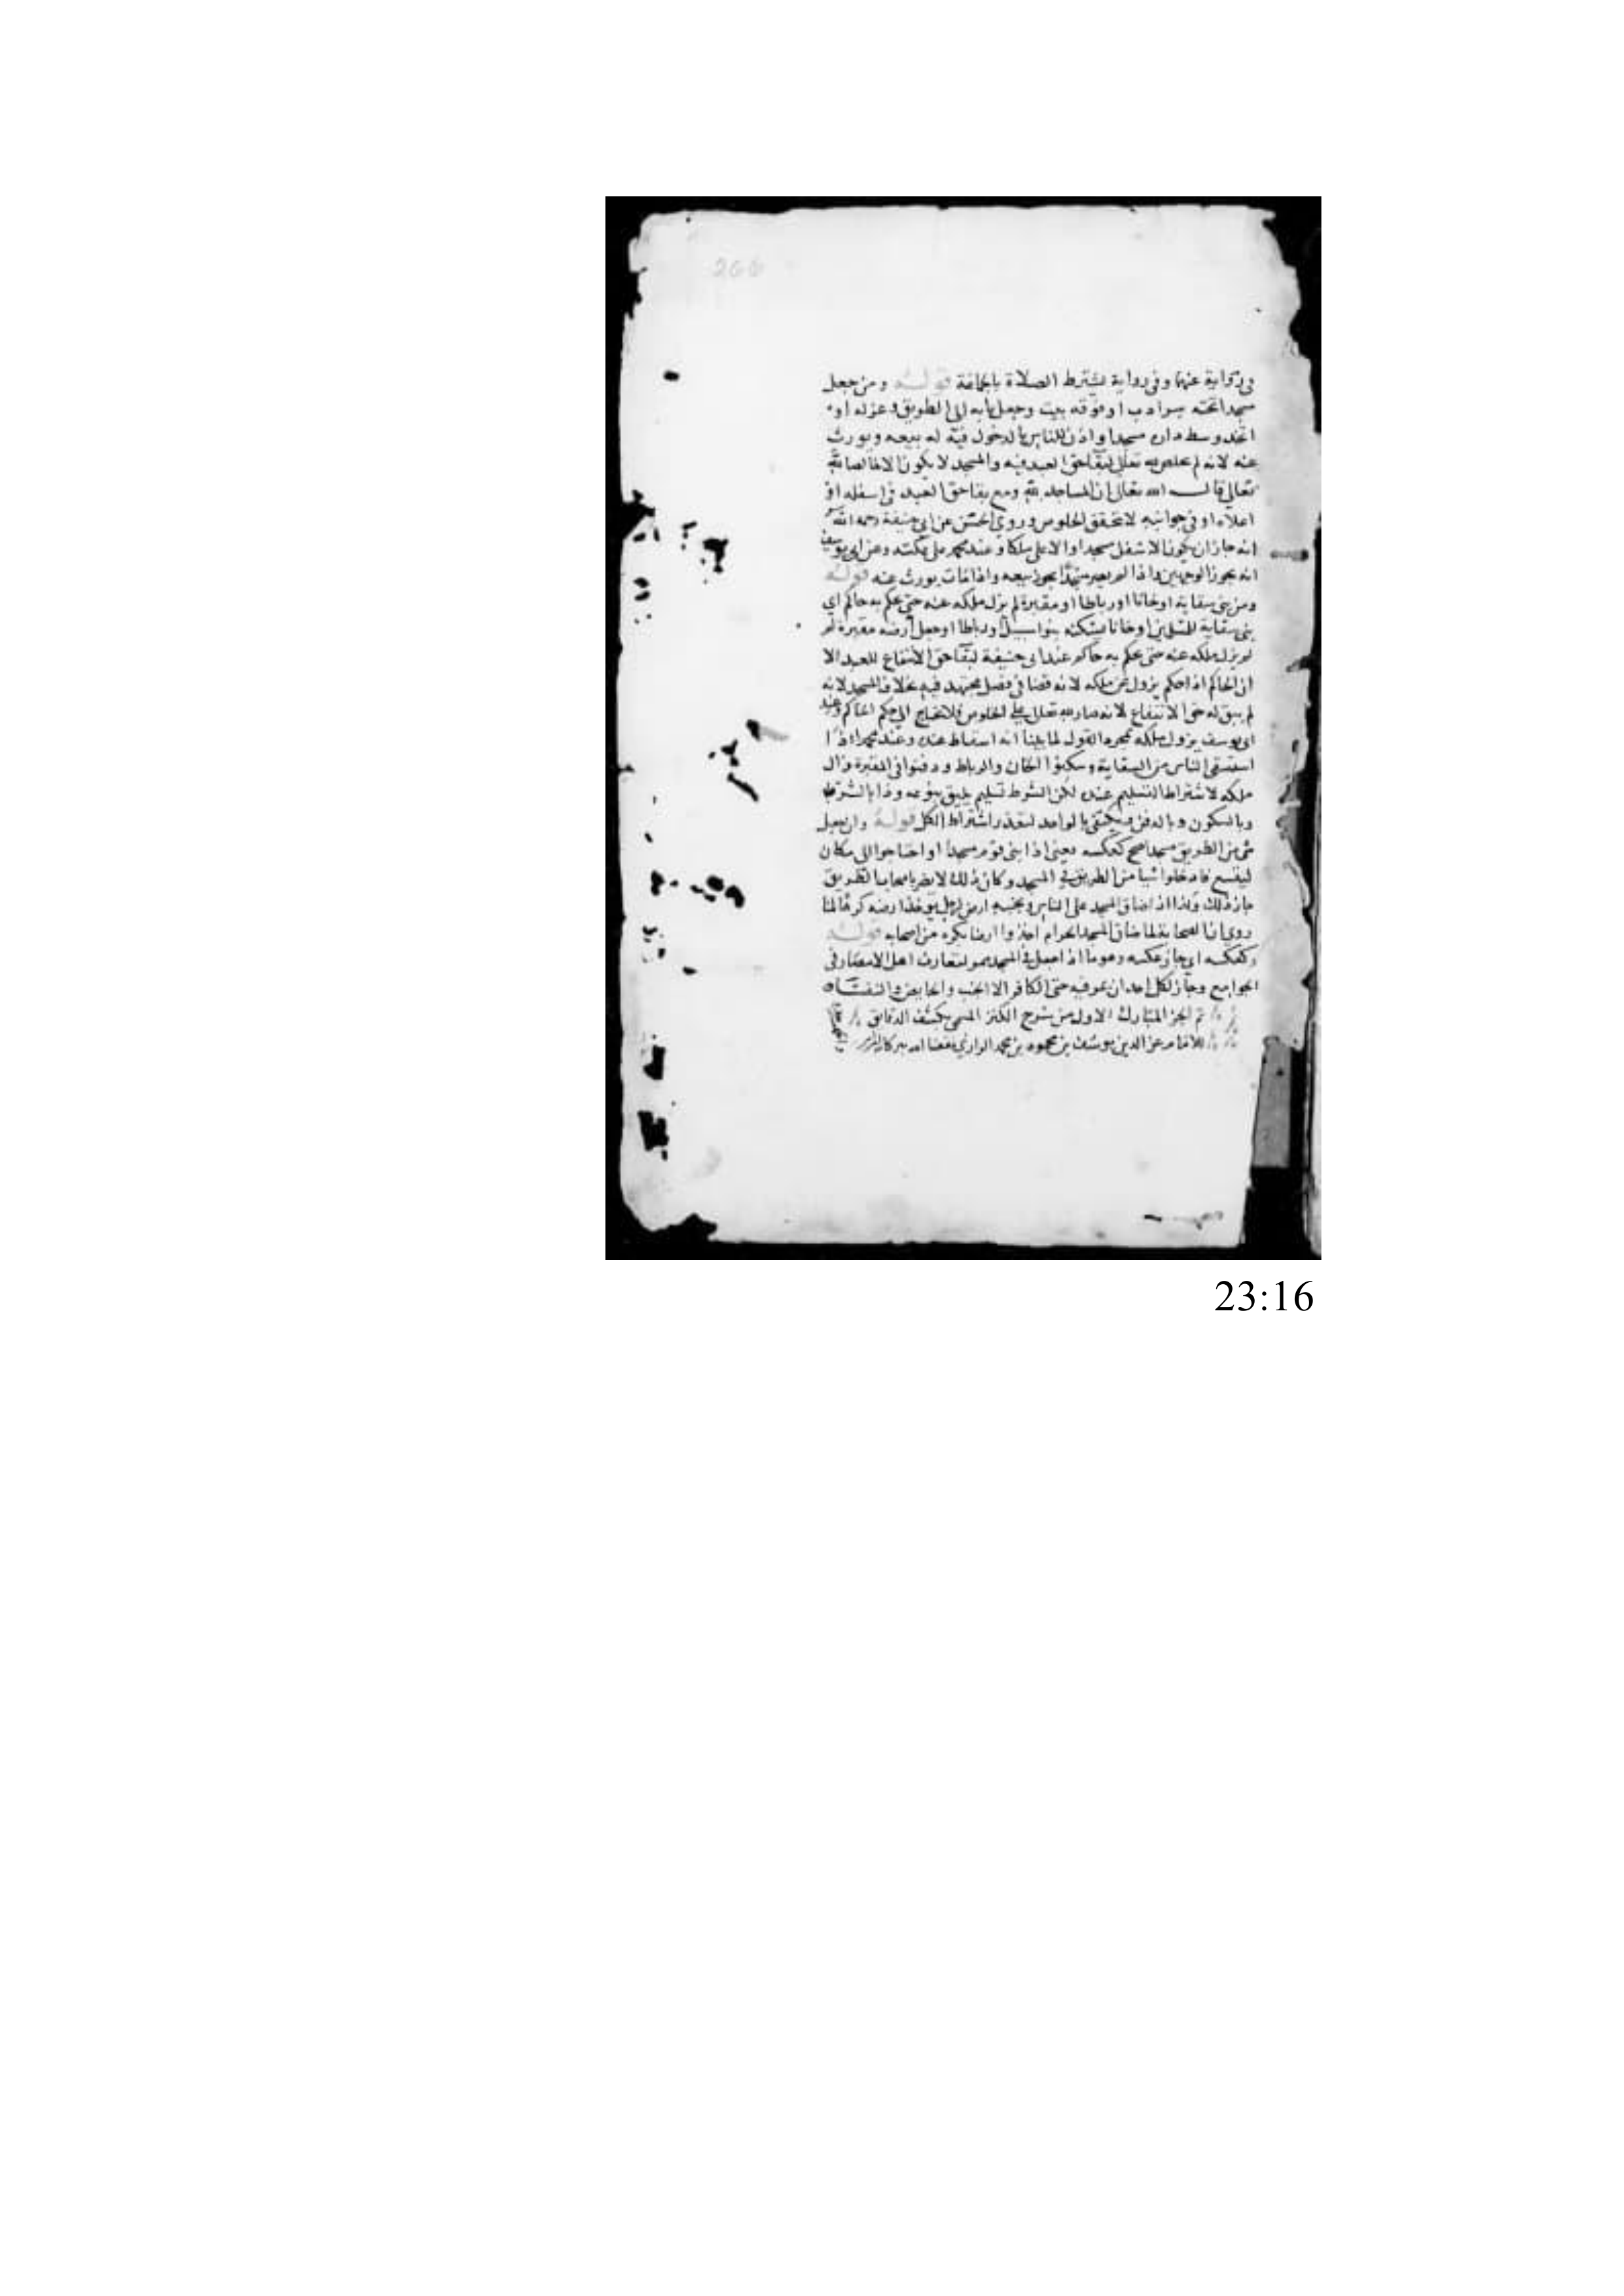 266
في رواية عنهما وفي رواية يشترط الصلاة بالجماعة قوله ومن جعل
مسجدا تحته سرداب او فوقه بيت وجعل بابه الى الطريق وعزله او
اتخذ وسط داره مسجدا واذن للناس بالدخول فيه له بيعه ويورث
عنه لانه لم يخلص لله تعالى لبقاحق العبد فيه والمسجد لا يكون الا خالصا لله
تعالى قال الله تعالى ان المساجد لله ومع بقا حق العبد في اسفله او
اعلاه او في جوانبه لا يتحقق الخلوص وروي الحسن عن ابي حنيفة رحمه الله
انه جاز ان يكون الاسفل مسجدا والاعلى ملكا وعند محمد على عكسه وعن ابي يوسف
انه يجوز الوجهين واذا لم يصر مسجدا يجوز بيعه واذا مات يورث عنه قوله
ومن بنى سقاية او خانا او رباطا او مقبرة لم يزل ملكه عنه حتى يحكم به حاكم اي
بنى سقاية للمسلمين او خانا يسكنه بنوا سبيل او رباطا او جعل ارضه مقبرة لم
لم يزل ملكه عنه حتى يحكم به حاكم عند ابي حنيفة لبقا حق الانتفاع للعبد الا
ان الحاكم اذا حكم يزول عن ملكه لانه قضا في فصل مجتهد فيه بخلاف المسجد لانه
لم يبق له حق الانتفاع لانه صار لله تعالى على الخلوص فلا يحتاج الى حكم الحاكم وعند
ابي يوسف يزول ملكه بمجرد القول لما بينا انه اسقاط عنده وعند محمد اذا
استسقى الناس من السقاية وسكنوا الخان والرباط ودفنوا في المقبرة زال
ملكه لاشتراط التسليم عنده لكن الشرط تسليم يليق بنوعه وذا بالشرب
وبالسكون وبالدفن ويكتفي بالواحد لتعذر اشتراط الكل قوله وان جعل
شي من الطريق مسجدا صح كعكسه يعني اذا بنى قوم مسجدا او احتاجوا الى مكان
ليتسع فادخلوا شيا من الطريق في المسجد وكان ذلك لا يضر باصحاب الطريق
جاز ذلك وكذا اذا ضاق المسجد على الناس وبجنبه ارض لرجل يوخذ ارضه كرها لما
روي ان الصحابة لما ضاق المسجد الحرام اخذوا ارضا بكره من اصحابه قوله
كعكسه اي جاز عكسه وهو ما اذا جعل في المسجد ممر لتعارف اهل الامصار في
الجوامع وجاز لكل احد ان يمر فيه حتى الكافر الا الجنب والحايض والنفسا
تم الجز المبارك الاول من شرح الكنز المسمى بكشف الدقايق
للامام عز الدين يوسف بن محمود بن محمد الرازي نفعنا الله ببركاته
23:16